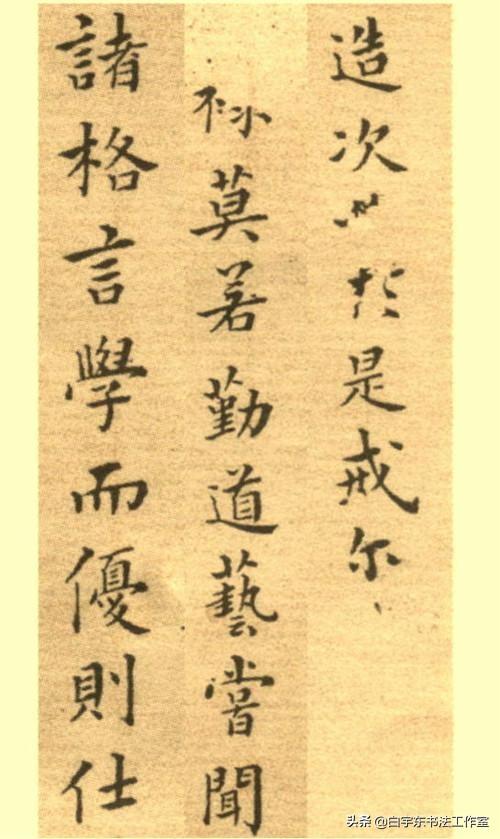 造次必於是戒尔
莫若勤道藝嘗聞
諸格言學而優則仕
头条 @白宇东书法工作室